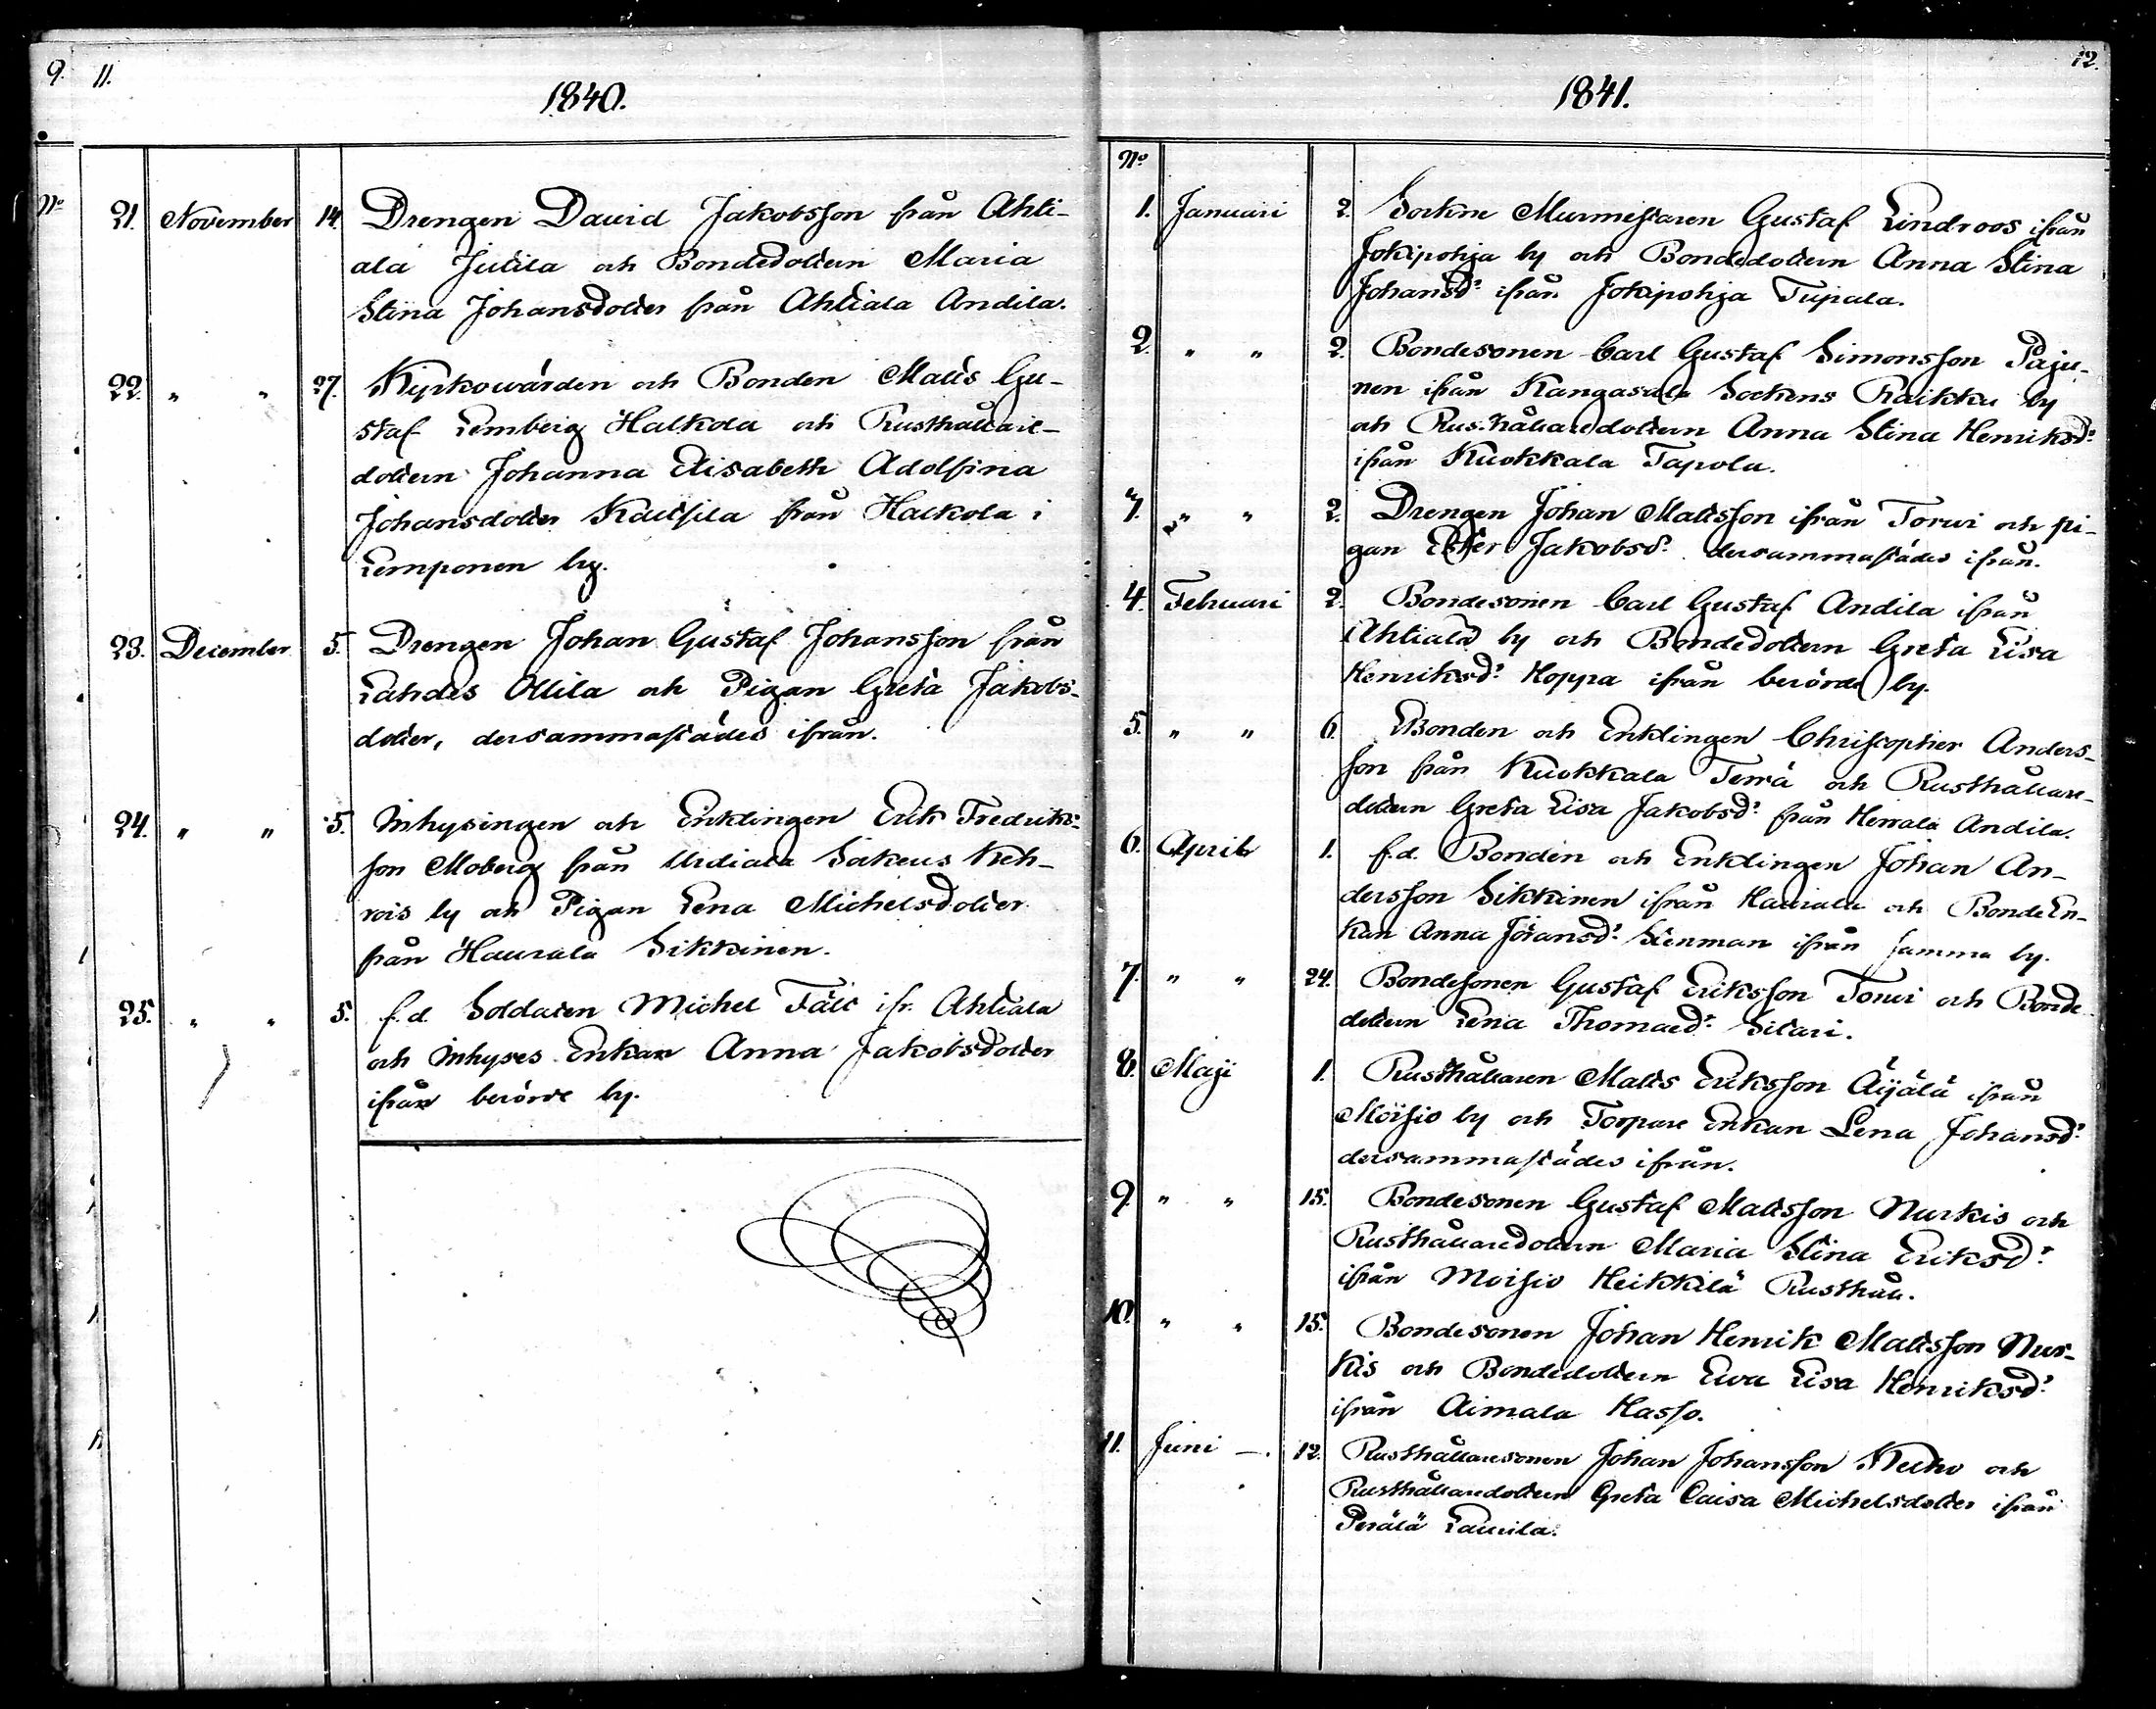 9. 11.
1840.
No 21. November 14. Drengen David Jakobsson från Ahti-
ala Jutila och Bondedottern Maria
Stina Johansdotter från Ahtiala Andila.
22. " " 27. Kyrkowärden och Bonden Matts Gu-
staf Lemberg Halkola och Rusthållare-
dottern Johanna Elisabeth Adolfina
Johansdotter från Halkola i
Lemponen by.
23. December 5. Drengen Johan Gustaf Johansson från
Lahdis Ollila och Pigan Greta Jakobs-
dotter, dersammastädes ifrån.
24. " " 5. Inhysingen och Enklingen Erik Fredriks-
son Moberg från Urdiala Sokens Keh-
rois by och Pigan Lena Michelsdotter
från Haurala Sikkinen.
25. " " 5. f.d. Soldaten Michel Fält ifr. Ahtiala
och Inhyses Enkan Anna Jakobsdotter
ifrån berörde by.
12.
1841.
No
1. Januari 2. Sockne Murmästaren Gustaf Lindroos ifrån
Jokipohja by och Bondedottern Anna Stina
Johansdr ifrån Jokipohja Tupala.
2. " " 2. Bondesonen Carl Gustaf Simonsson Paju-
nen ifrån Kangasala Sockens Raikku by
och Rusthållaredottern Anna Stina Henriksdr
ifrån Kuokkala Tapola.
3. " " 2. Drengen Johan Mattsson ifrån Torwi och pi-
gan Ester Jakobsdr dersammastädes ifrån.
4. Februari 2. Bondesonen Carl Gustaf Andila ifrån
Ahtiala by och Bondedottern Greta Lisa
Henriksdr Hoppa ifrån berörde by.
5. " " 6. Bonden och Enklingen Christopher Anders-
son från Kuokkala Terrä och Rusthållare-
dottern Greta Lisa Jakobsdr från Herrala Andila.
6. April 1. f.d. Bonden och Enklingen Johan An-
dersson Sikkinen ifrån Haurala och BondeEn-
kan Anna Johansdr Stenman ifrån samma by.
7. " " 24. Bondesonen Gustaf Eriksson Torwi och Bonde-
dottern Lena Thomaedr Sitari.
8. Maji 1. Rusthållaren Matts Eriksson Äijälä ifrån
Moisio by och Torpare Enkan Lena Johansdr
dersammastädes ifrån.
9. " " 15. Bondesonen Gustaf Mattsson Nurkis och
Rusthållaredottern Maria Stina Eriksdr
ifrån Moisio Heikkilä Rusthåll.
10. " " 15. Bondesonen Johan Henrik Mattsson Nur-
kis och Bondedottern Ewa Lisa Henriksdr
ifrån Aimala Hasso.
11. Juni — . 12. Rusthållaresonen Johan Johansson och
Rusthållaredottern Greta Caisa Michelsdotter ifrån
Perälä Laurila.